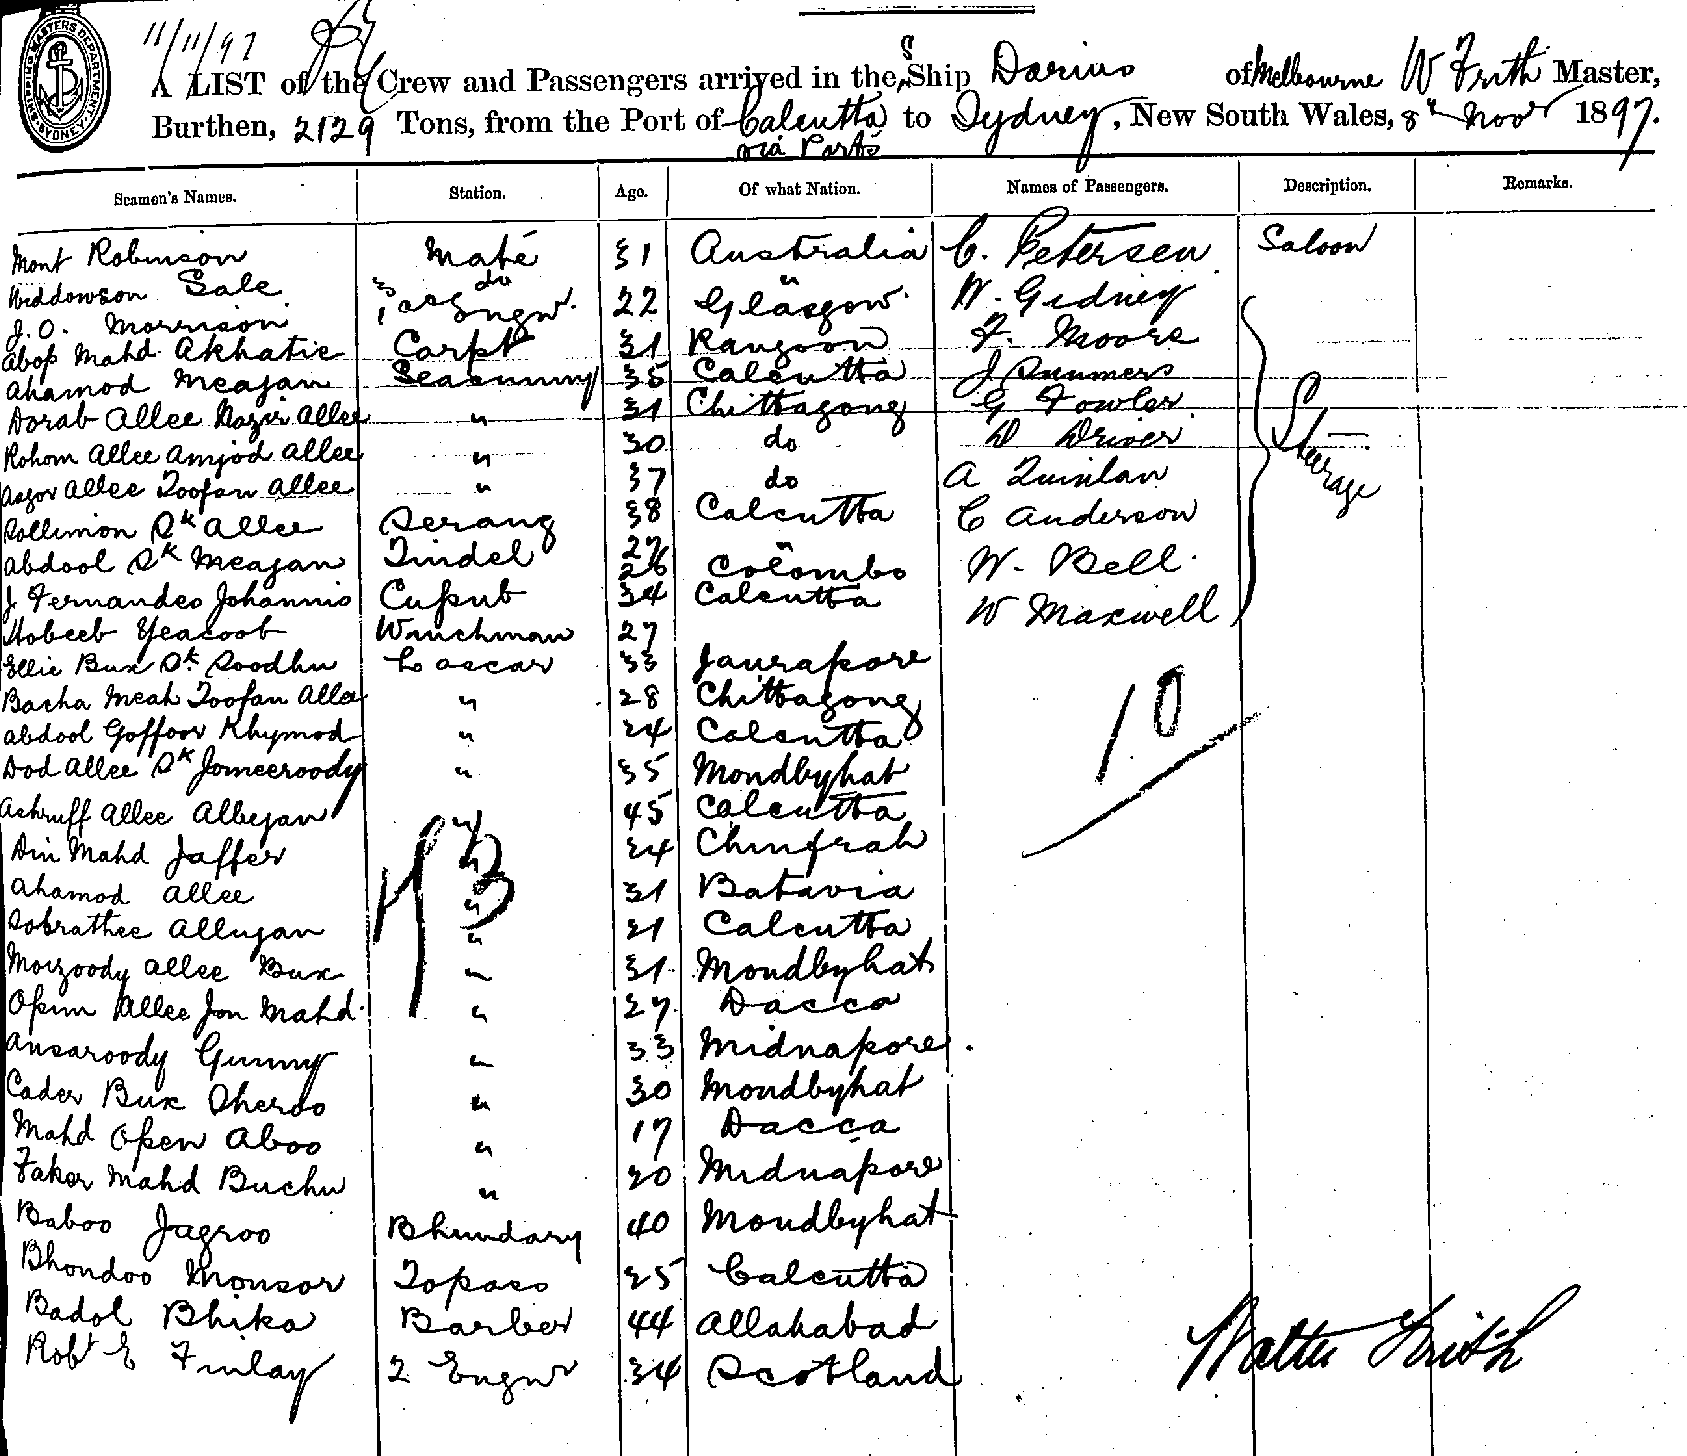 11/11/97
SHIPPING MASTERS DEPARTMENT SYDNEY
A LIST of the Crew and Passengers arrived in the S Ship Darius of Melbourne W Frith Master,
Burthen, 2129 Tons, from the Port of Calcutta to Sydney, New South Wales, 8th Novr 1897.
via Ports
Seamen's Names. Station. Age. Of what Nation. Names of Passengers. Description. Remarks.
Mont Robinson Mate 31 Australia C. Petersen Saloon
Widdowson Sale do 22 " W. Gidney
J. O. Morrison Engnr. Glasgow F. Moore
Abop Mahd. Akhatie Carpt 31 Rangoon J Summers
Ahamod Meajan Seacunny 35 Calcutta G Fowler
Dorab Allee Nazir Allee " 31 Chittagong D Driver
Rohom Allee Amjod Allee " 30 do A Quinlan
Aszor Allee Toofan Allee " 37 do C Anderson
Sollimon Sk Allee Serang 38 Calcutta W. Bell
Abdool Sk Meajan Tindel 27 " W Maxwell
J Fernandes Johannis 26 Colombo Steerage
Hobeeb Yeacoob Winchman 34 Calcutta
Ellie Bux Sk. Soodhu Lascar 33 Jaurapore
Bacha Meah Toofan Allee " 28 Chittagong
Abdool Goffoor Khymod " 24 Calcutta
Dod Allee Sk Jomeeroody " 35 Mondbyhat
10
Achruff Allee Albejan " 45 Calcutta
Din Mahd Jaffer " 24
Ahamod Allee " 31 Batavia
Sobrathee Allujan " 21 Calcutta
Moizoody Allee Bux " 31 Mondbyhat
43
Opim Allee Jon Mahd. " 27 Dacca
Ansaroody Gunny " 33 Midnapore.
Cader Bux Sheroo " 30 Mondbyhat
Mahd Open Aboo " 17 Dacca
Faker Mahd Buchu " 20 Midnapore
Baboo Jagroo Bhundary 40 Mondbyhat
Bhondoo Monsor Topass 25 Calcutta
Badol Bhika Barber 44 Allahabad
Robt E Finlay 2 Engnr 34 Scotland
Walter Frith